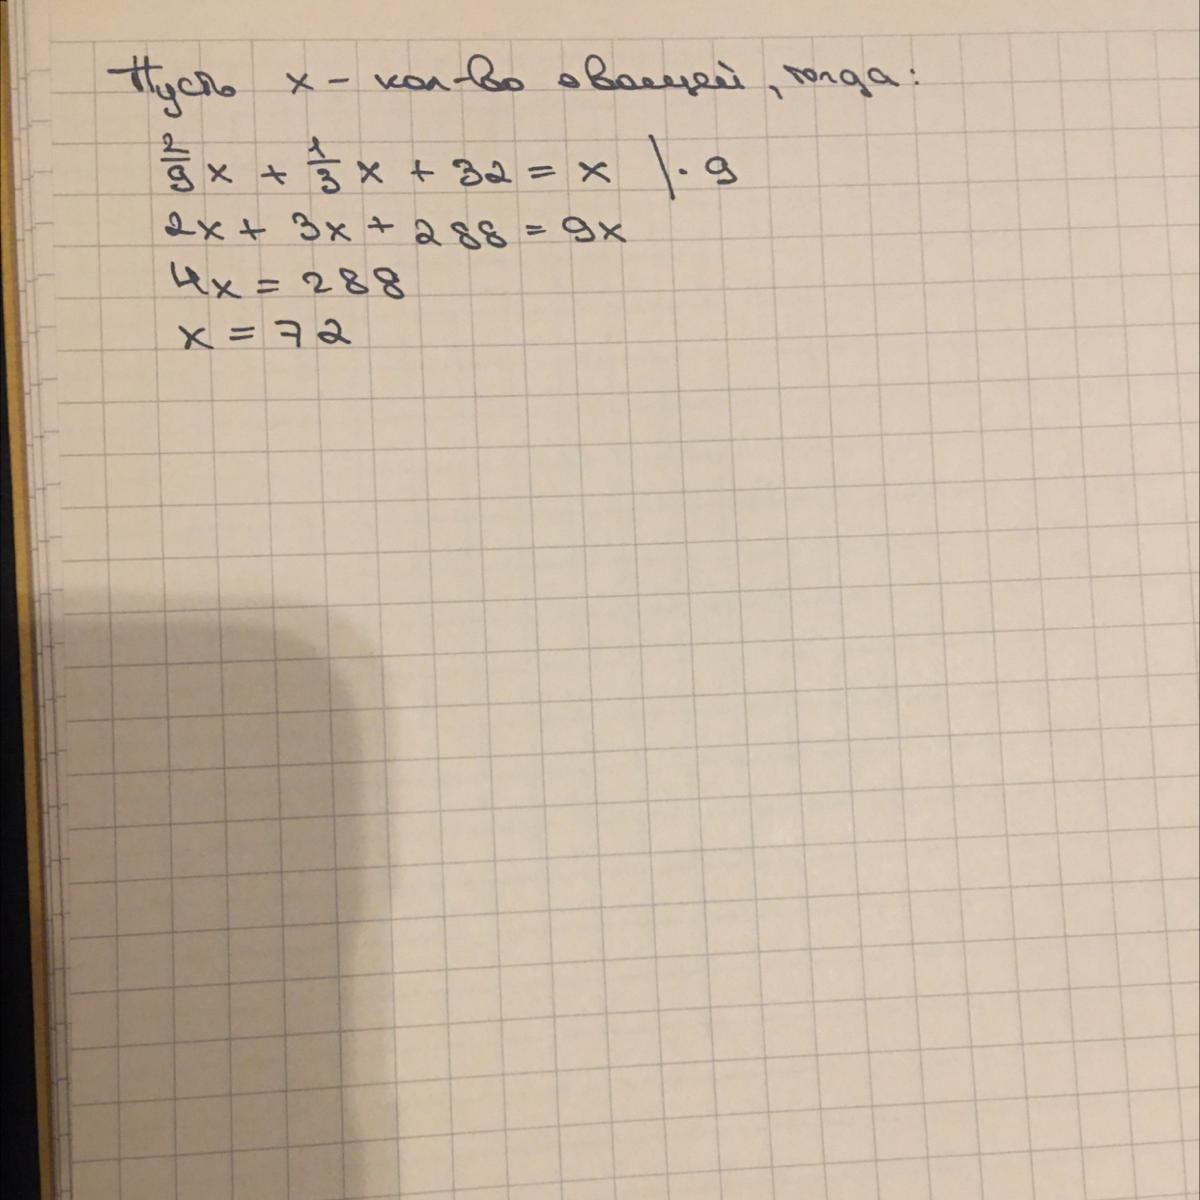 Пусть x - кол-во овощей, тогда:
2/9 x + 1/3 x + 32 = x |· 9
2x + 3x + 288 = 9x
4x = 288
x = 72